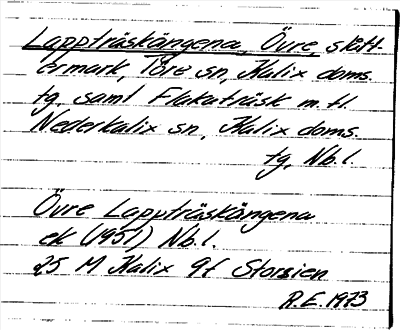 Lappträskängena, Övre, slått-
ermark, Töre sn, Kalix doms.
tg. samt Flakaträsk m.fl.
Nederkalix sn, Kalix doms.
tg, Nb.l.
Övre Lappträskängena
ek (1951) Nb.l.
25 M Kalix 9f Storsien
R.E. 1973